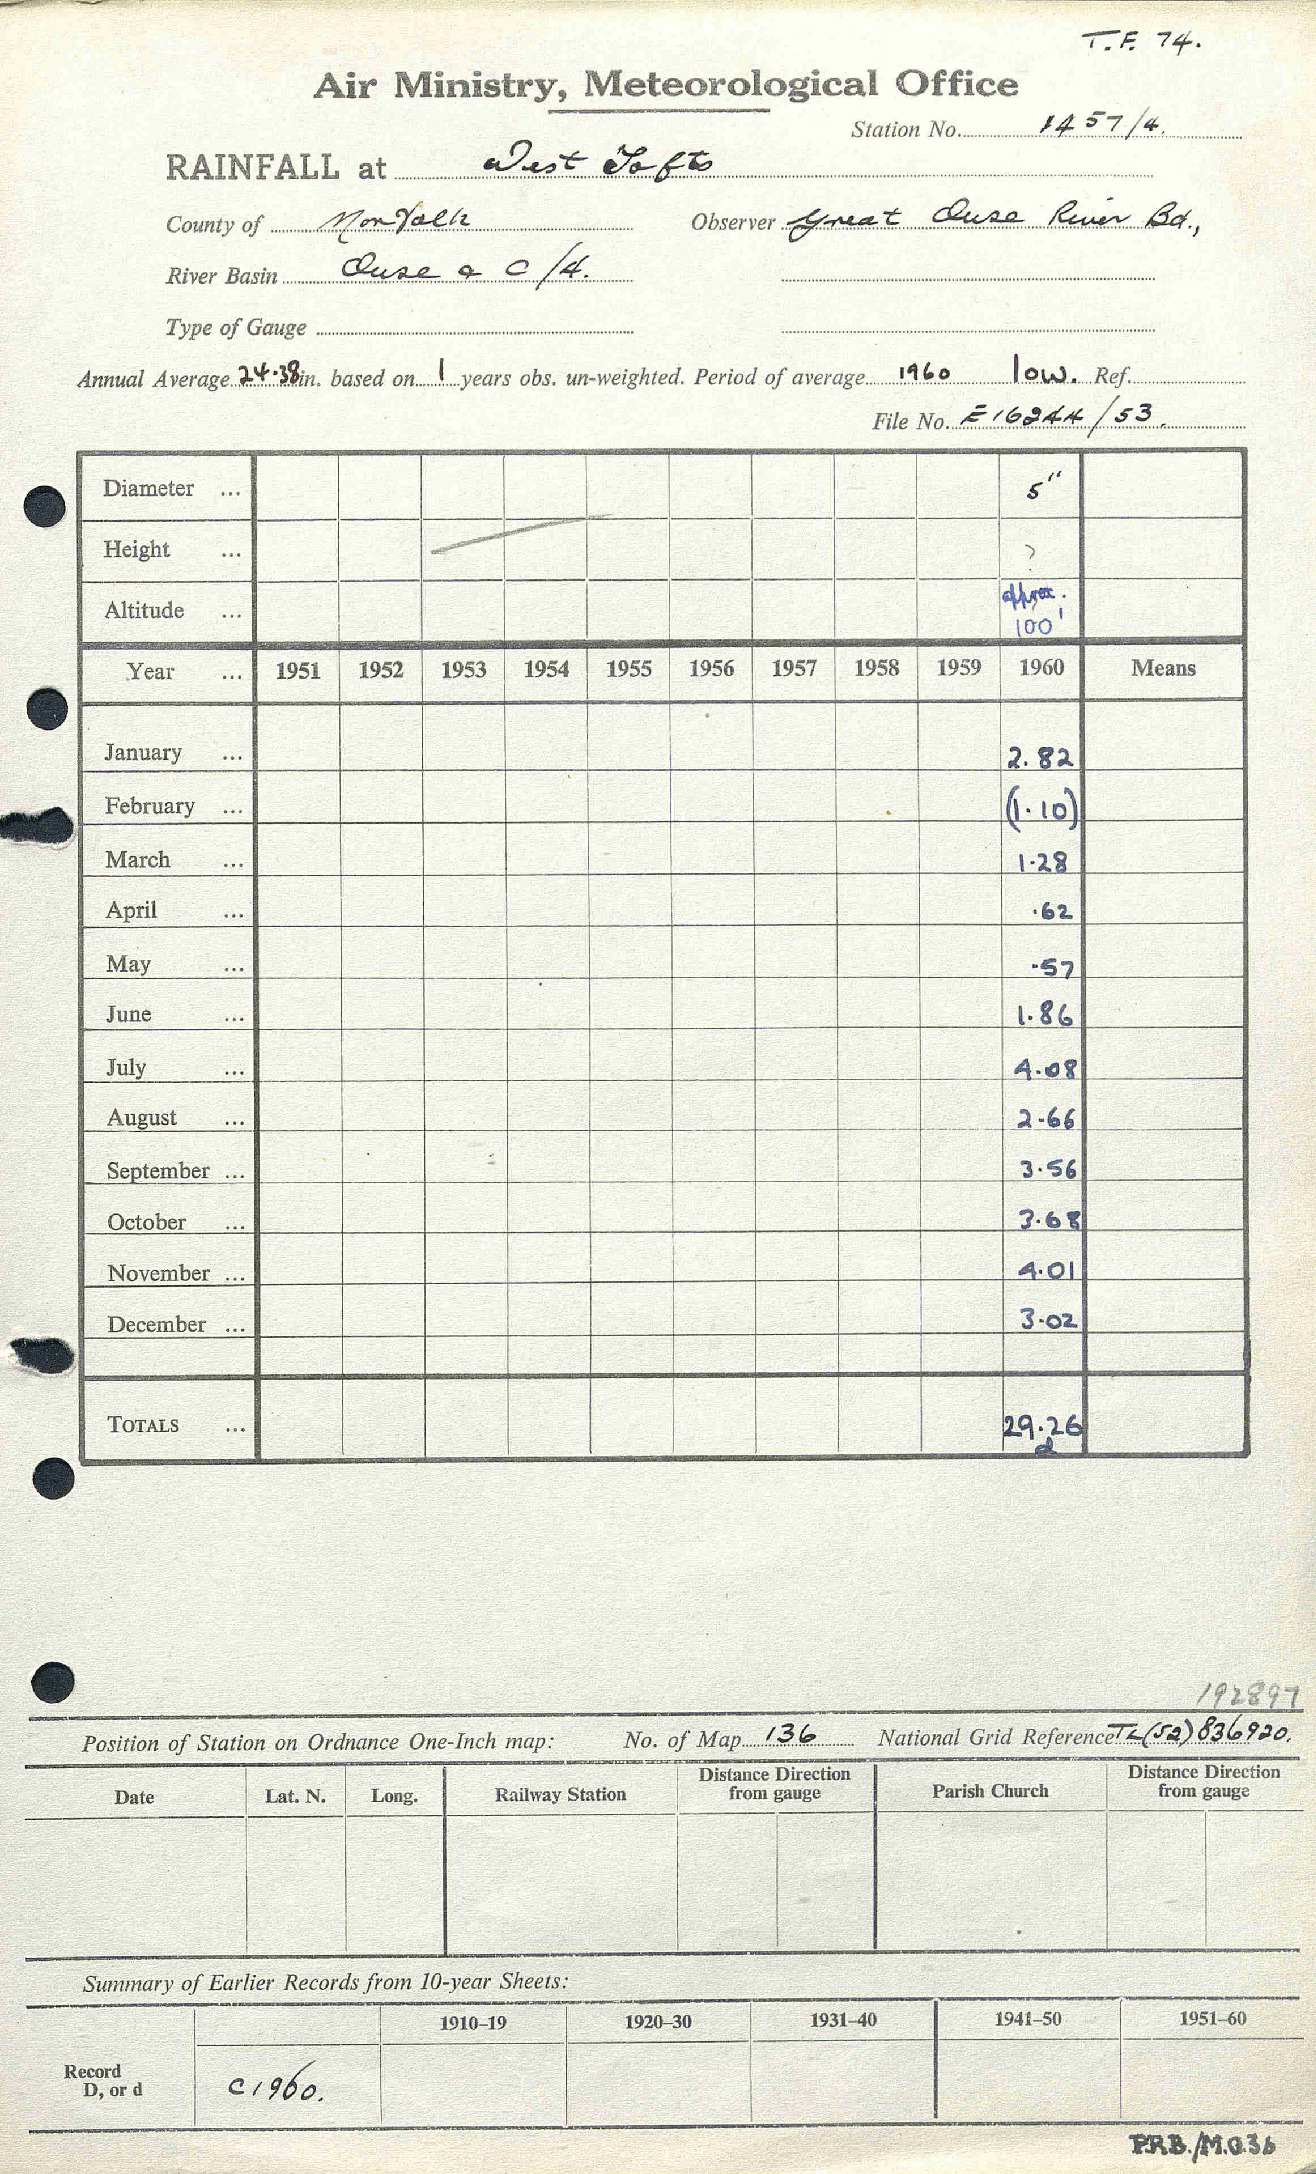 T.F. 74.
Air Ministry, Meteorological Office
Station No. 1457/4.
RAINFALL at West Tofts
County of Norfolk Observer Great Ouse River Bd.,
River Basin Ouse & C/4.
Type of Gauge
Annual Average 24.38 in. based on 1 years obs. un-weighted. Period of average 1960 low. Ref.
File No. E16244/53.
Diameter ... 5"
Height ... ?
Altitude ... approx. 100'
Year ... 1951 1952 1953 1954 1955 1956 1957 1958 1959 1960 Means
January ... 2.82
February ... (1.10)
March ... 1.28
April ... .62
May ... .57
June ... 1.86
July ... 4.08
August ... 2.66
September ... 3.56
October ... 3.68
November ... 4.01
December ... 3.02
TOTALS ... 29.26
d
192897
Position of Station on Ordnance One-Inch map: No. of Map 136 National Grid Reference TL(52)836920.
Date Lat. N. Long. Railway Station Distance Direction from gauge Parish Church Distance Direction from gauge
Summary of Earlier Records from 10-year Sheets:
1910–19 1920–30 1931–40 1941–50 1951–60
Record
D, or d C1960.
P.R.B./M.O.36